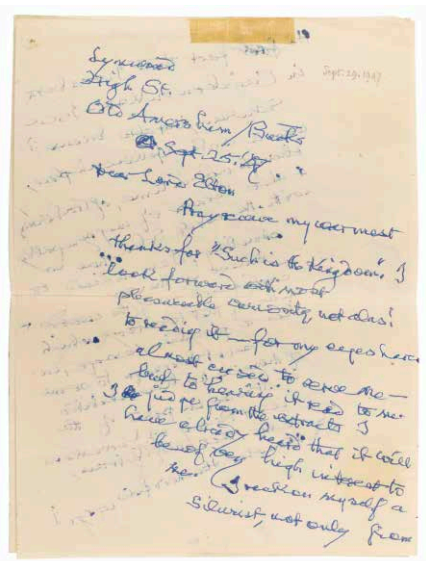 Lynwood
High St.
Old Amersham/Bucks
Sept. 25. '47
Sept. 29. 1947
Dear Lord Elton
Pray receive my warmest
thanks for "Such is the Kingdom". I
look forward with most
pleasurable curiosity, not alas!
to reading it — for my eyes have
almost ceased to serve me —
but to hearing it read to me.
I judge from the extracts I
have already heard that it will
be of very high interest to
me. I reckon myself a
Silurist, not only from